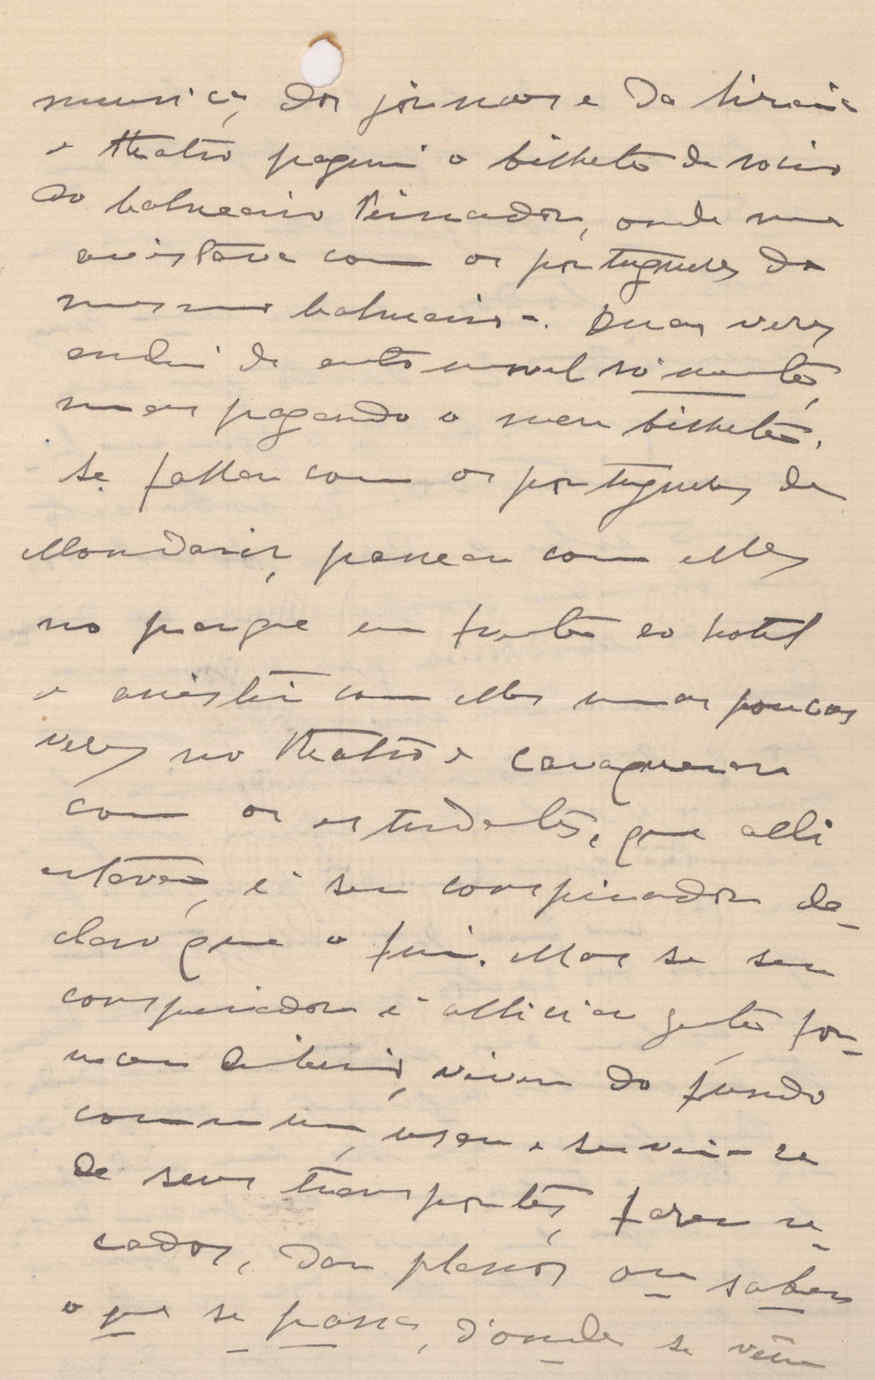 musica, dos jornaes e da
e theatro paguei o bilhete de socio
do balneario Peinador, onde me
avistava com os portugueses do
mesmo balneario. Duas vezes
andei de automovel sómente,
mas pagando o meu bilhete.
Se fallar com os portugueses de
Mondariz, passear com elles
no parque em frente ao hotel
e assisti com elles umas poucas
vezes no theatro e cavaquear
com os estudantes, que alli
estavão, é ser conspirador de-
claro que o fui. Mas se ser
conspirador é alliciar gente for-
necer dinheiro, viver do fundo
commum, usar e servir-se
de seus transportes, fazer re-
cados, dar planos ou saber
o que se passa, d'onde se vem